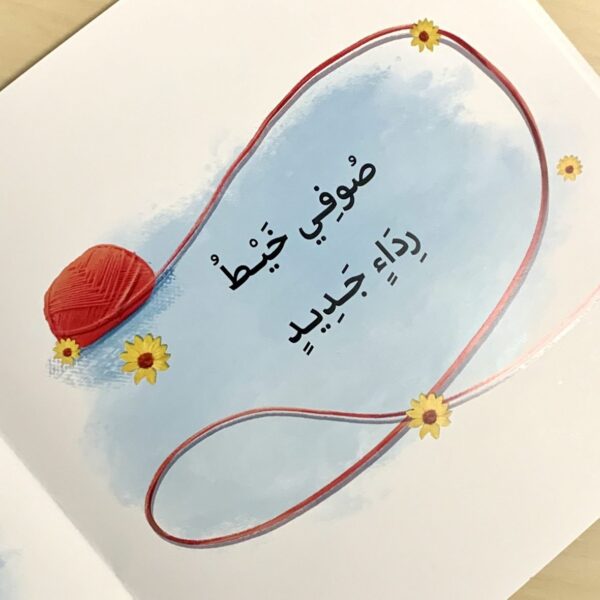 صُوفِي خَيْطُ
رِدَاءٍ جَدِيدٍ